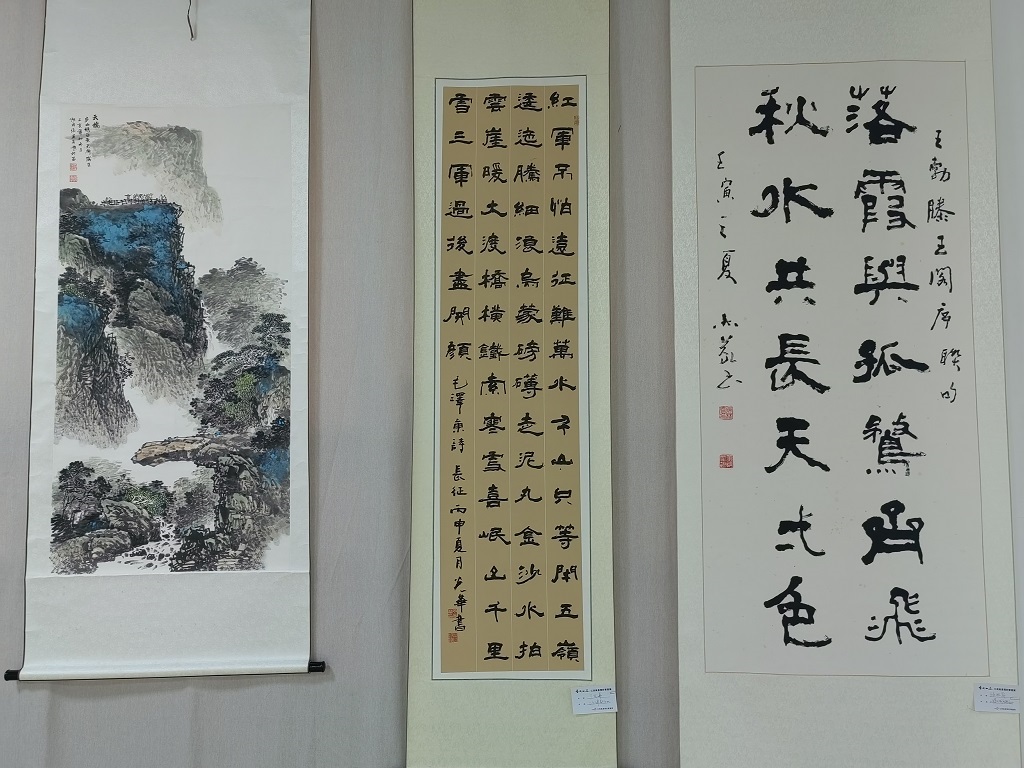 王勃滕王阁序聯句
落霞與孤鶩齊飛
秋水共長天弌色
壬寅之夏
紅軍不怕遠征難萬水千山只等閑五嶺
逶迤騰細浪烏蒙磅礴走泥丸金沙水拍
雲崖暖大渡橋橫鐵索寒更喜岷山千里
雪三軍過後盡開顏 毛澤東詩 長征 丙申夏月 光華書